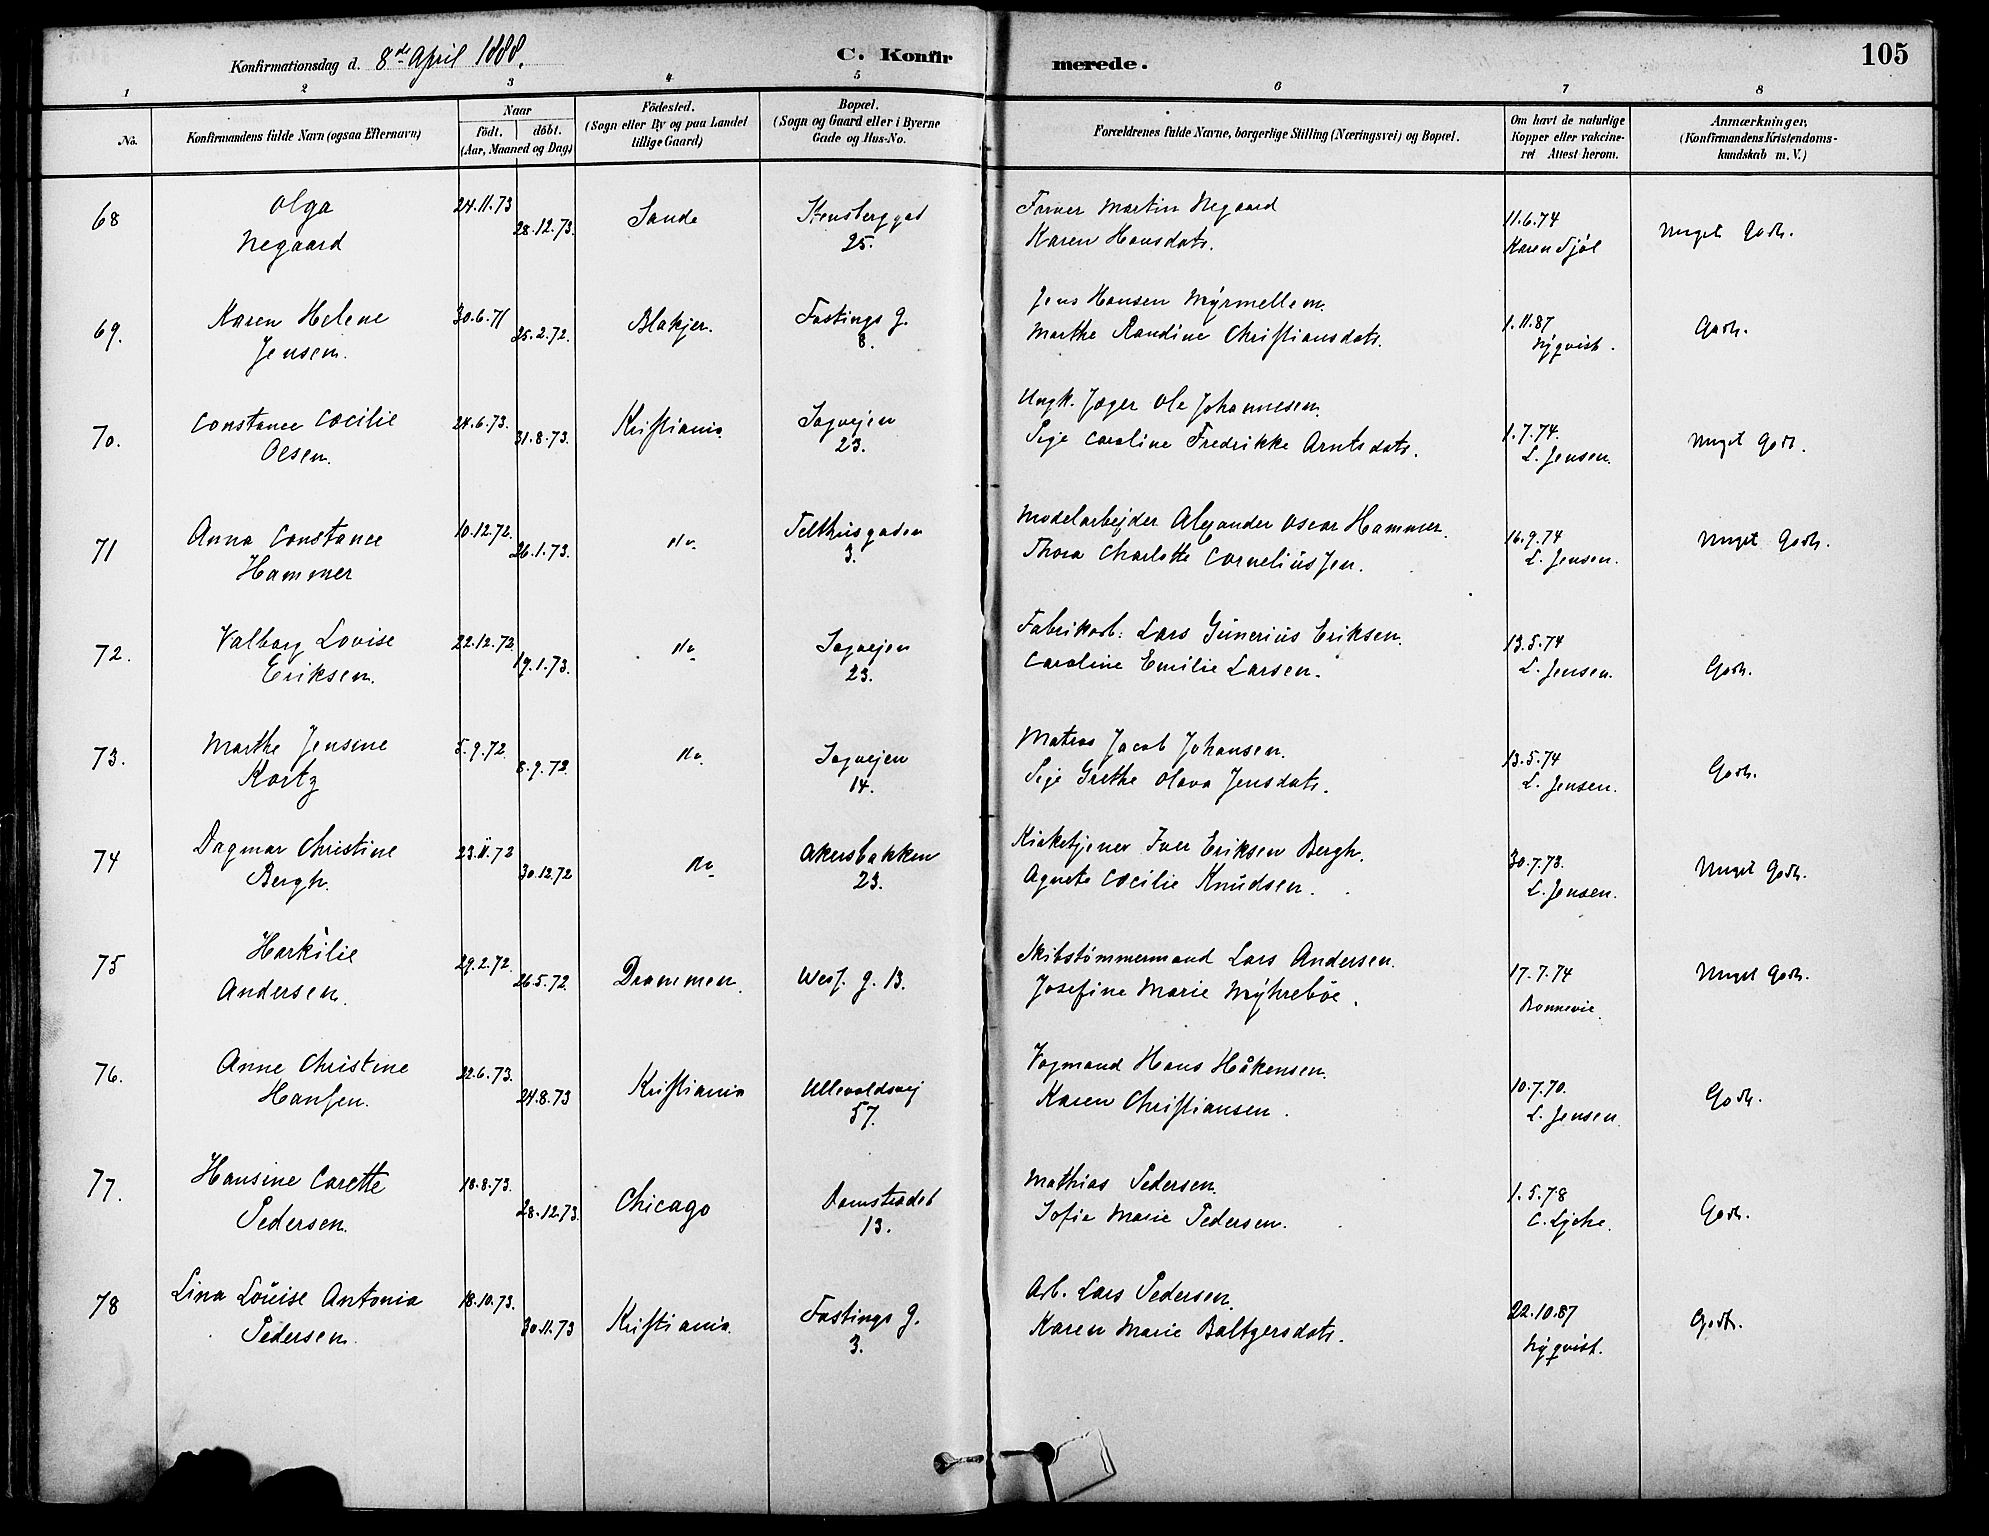 Konfirmationsdag d. 8de April 1888.
C. Konfirmerede.
105
1 2 3 4 5 6 7 8
No.
Konfirmandens fulde Navn (ogsaa Efternavn)
Naar
födt. döbt.
(Aar, Maaned og Dag)
Födested.
(Sogn eller By og paa Landet
tillige Gaard)
Bopæl.
(Sogn og Gaard eller i Byerne
Gade og Hus-No.
Forældrenes fulde Navne, borgerlige Stilling (Næringsvei) og Bopæl.
Om havt de naturlige
Kopper eller vakcine-
ret Attest herom.
Anmærkninger,
(Konfirmandens Kristendoms-
kundskab m. V.)
68 Olga 24.11.73 Sande Stensberggad Martin Negaard 11.6.74 Meget Godt.
Negaard 28.12.73. 25. Karen Hansdatr. Karen Fjöl
69. Karen Helene 30.6.71 Blakjer. Fastings g. Jens Hansen Myrmellem. 1.11.87 Godt.
Jensen. 25.2.72. 8. Marthe Randine Christiansdatr. Nyqvist.
70. Constance Cæcilie 24.6.73. Kristiania Sagvejen Ungk. Jæger Ole Johannesen. 1.7.74. Meget Godt.
Olsen. 31.8.73. 23. Pige Caroline Fredrikke Arntsdatr. L. Jensen.
71 Anna Constance 10.12.72. do. Telthusgaden Modelarbejder Alexander Oscar Hammer. 16.9.74 Meget Godt.
Hammer 26.1.73. 3. Thora Charlotte Corneliusen. L. Jensen.
72. Valborg Lovise 22.12.72. do. Sagvejen Fabrikarb: Lars Gunerius Eriksen. 13.5.74
Eriksen. 19.1.73. 23. Caroline Emilie Larsen. L. Jensen. Godt.
73. Marthe Jensine 5.9.72. do. Sagvejen Matros Jacob Johansen. 13.5.74 Godt.
Kortz 8.9.72. 14. Pige Grethe Olava Jensdatr. L. Jensen.
74 Dagmar Christine 23.11.72 do. Akersbakken Kirketjener Iver Eriksen Bergh. 30.7.73. Meget Godt.
Bergh. 30.12.72 23. Agnete Cæcilie Knudsen. L. Jensen.
75 29.2.72. Drammen. g. 13. Skibstømmermand Lars Andersen. 17.7.74 Meget Godt.
Andersen. 26.5.72. Josefine Marie Myhrebøe. Bonnevie.
76. Anne Christine 22.6.73. Kristiania Ullevoldsvej Vogmand Hans Håkensen. 10.7.70. Godt.
Hansen. 24.8.73 57. Karen Christiansen. L. Jensen.
77. Hansine Carette 18.8.73. Chicago Damstredet Mathias Pedersen. 1.5.78 Godt.
Pedersen. 28.12.73. 13. Sofie Marie Pedersen. C. Lyche.
78 Lina Louise Antonia 18.10.73. Kristiania. Fastings g. Arb. Lars Pedersen. 22.10.87 Godt.
Pedersen. 30.11.73 3. Karen Marie Baltzersdatr. Nyqvist.